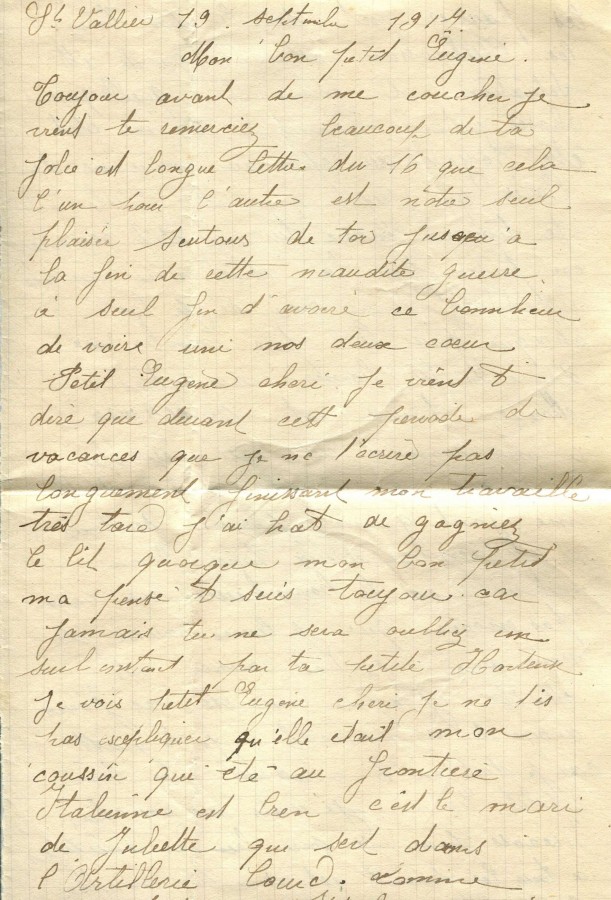 St Vallier 19 septembre 1914
Mon bon petit Eugène.
Toujour avant de me coucher je
vient te remerciez beaucoup de ta
jolie est longue lettre du 16 que cela
l'un pour l'autre est notre seul
plaisir sentous de toi jusqu'a
la fin de cette maudite guerre
a seul fin d'avoire ce bonnheur
de voire uni nos deux coeur
Petit Eugène cheri je vient t
dire que devant cett periode de
vacances que je ne t'ecrire pas
longuement finissant mon travaille
très tard j'ai hat de gagniez
le lit quoique mon bon petit
ma pensé t suis toujour car
jamais tu ne sera oubliez un
seul instant par ta petite Hortense
Je vois petit Eugène cheri je ne t'es
pas expliquer qu'elle etait mon
coussin qui été au frontiere
Italienne est bien c'est le mari
de Juliette que sert dans
l'Artillerie lourd. comme